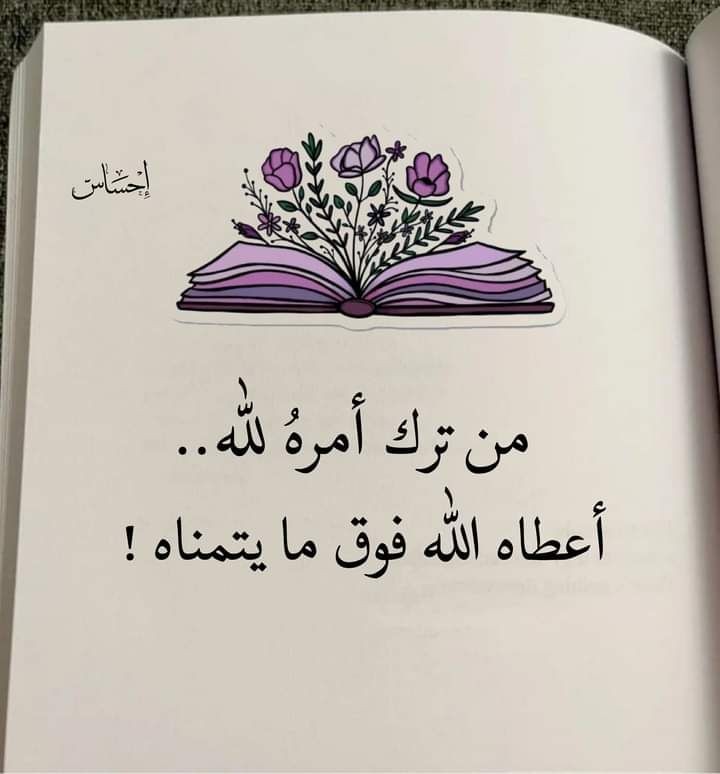 إِحْسَاسّ
من ترك أمرهُ لله..
أعطاه الله فوق ما يتمناه !